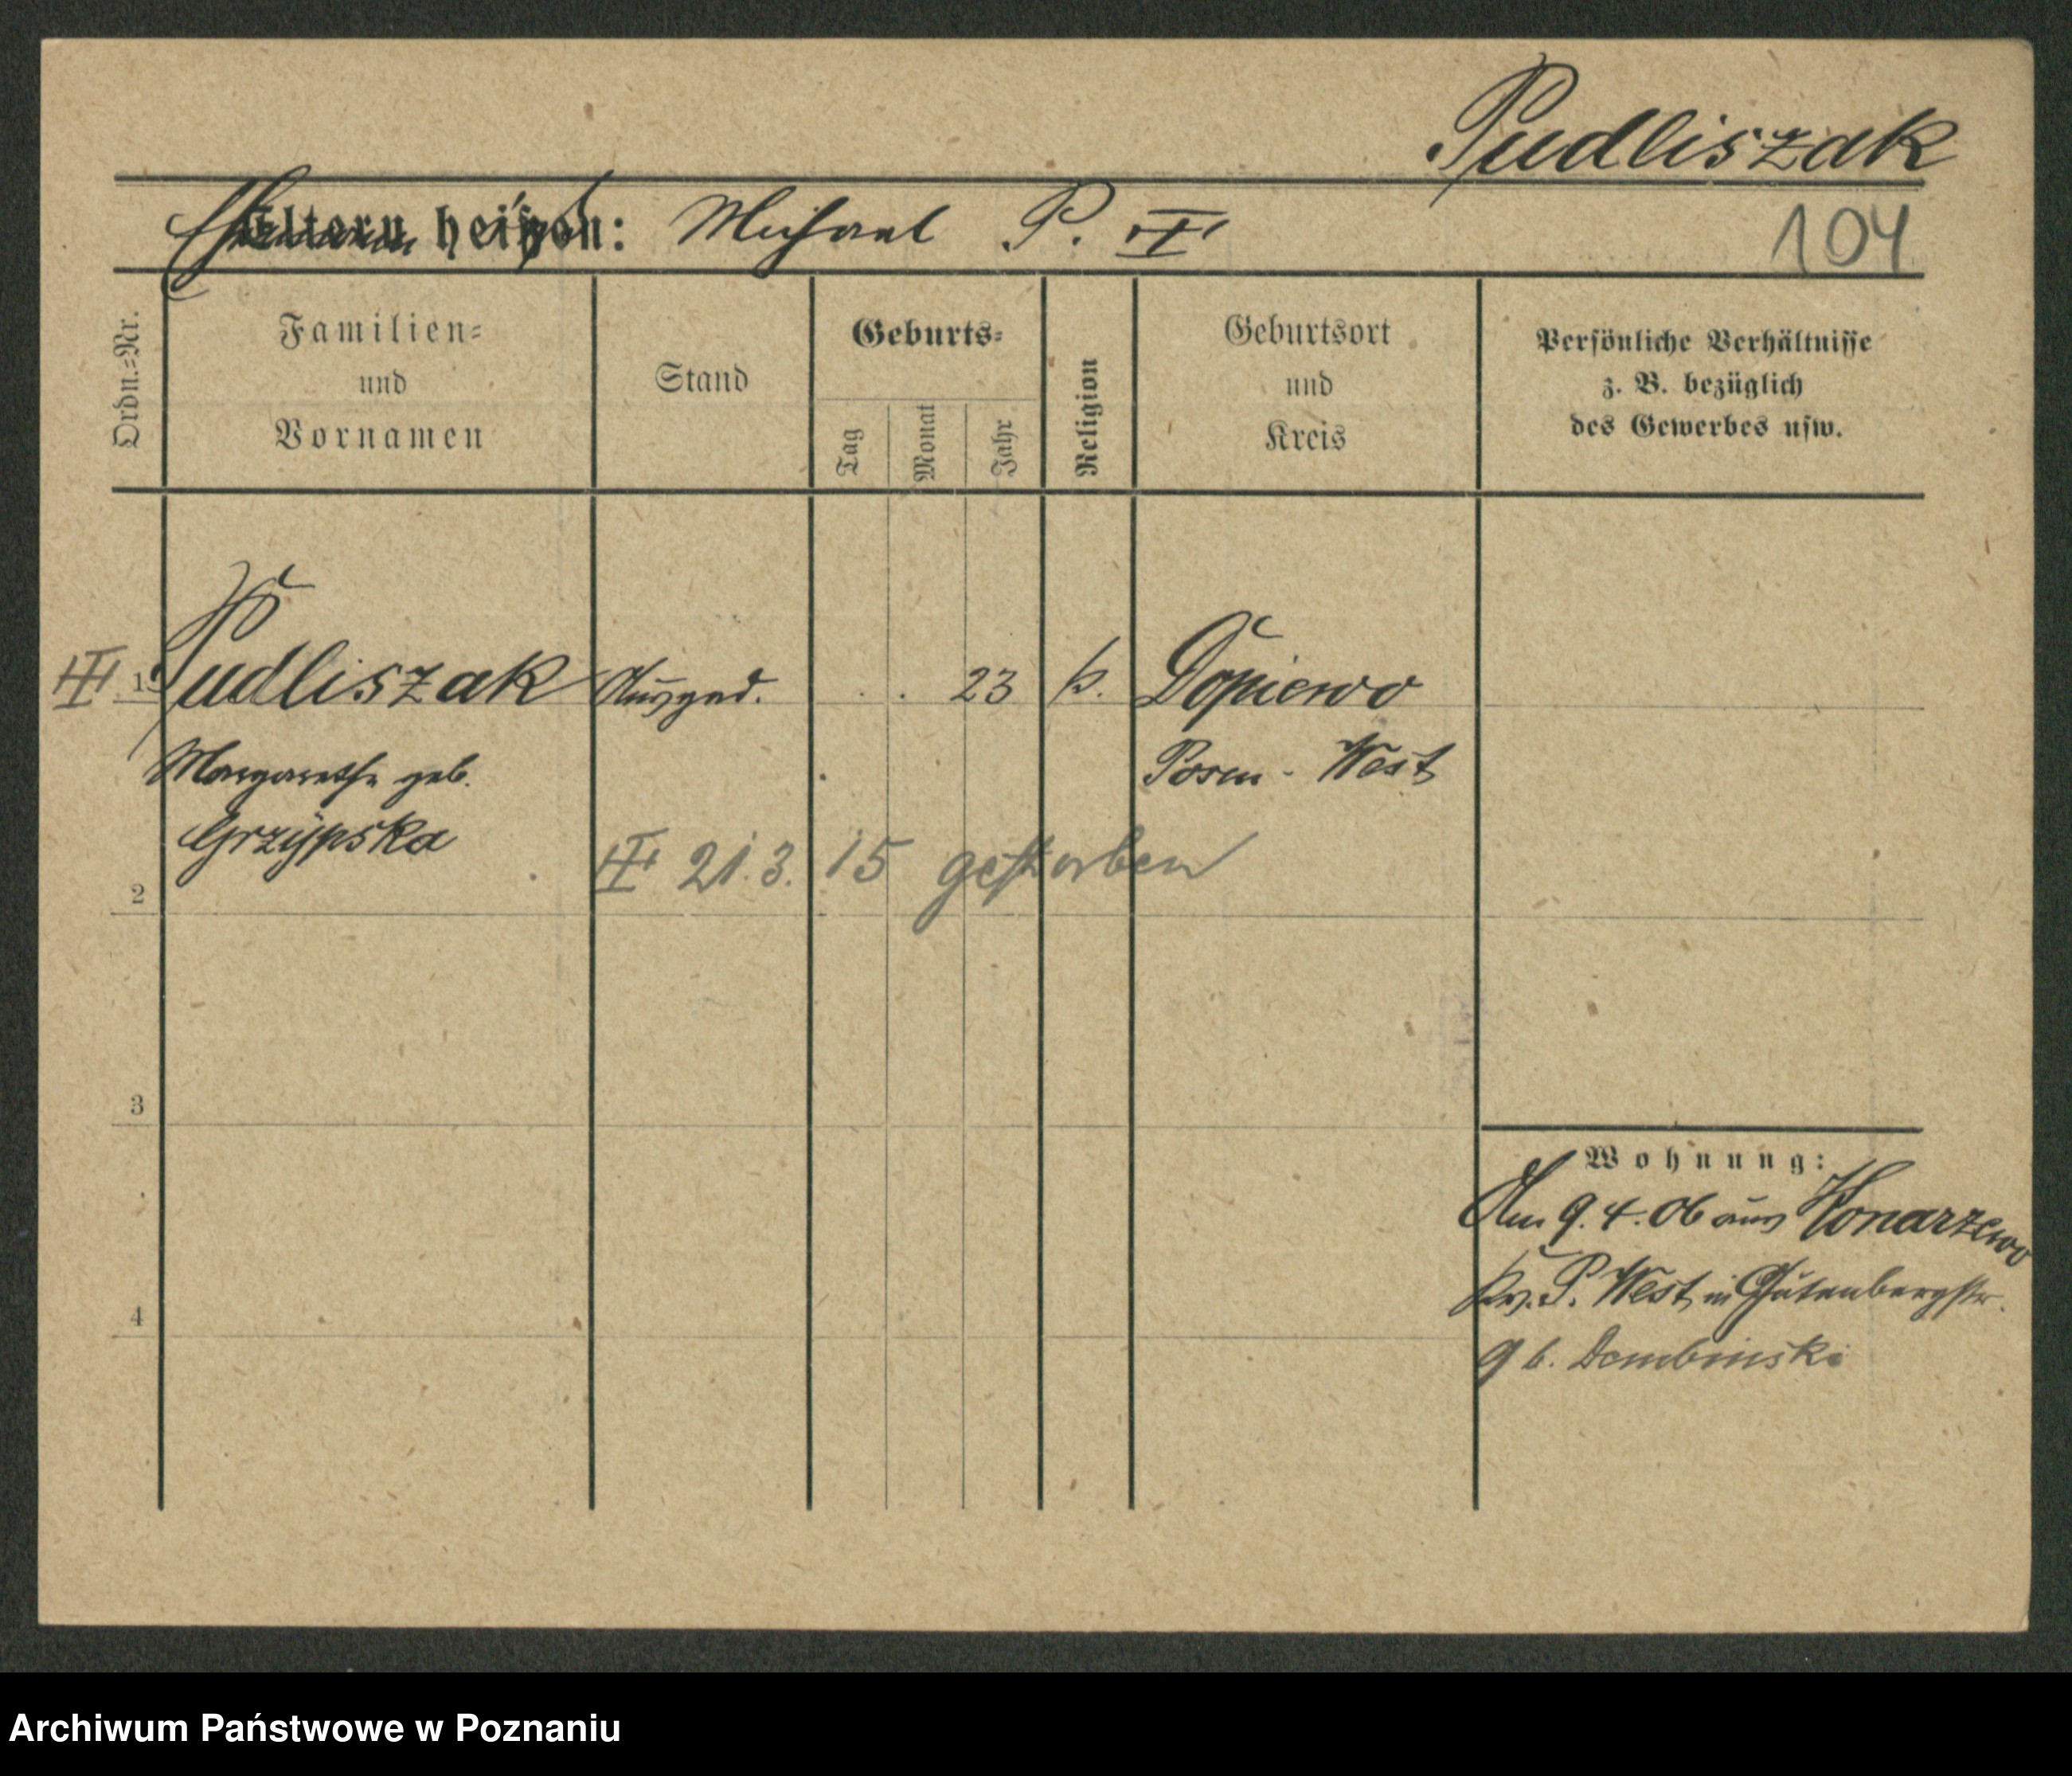 Pudliszak
Eltern heißen: Michael P.
104
Ordn.=Nr.
Familien=
und
Vornamen
Stand
Geburts=
Tag
Monat
Jahr
Religion
Geburtsort
und
Kreis
Persönliche Verhältnisse
z. B. bezüglich
des Gewerbes usw.
1 Pudliszak . . 23 k. Dopiewo
Margarethe geb. Posen - West
Grzÿpska
21. 3. 15 gestorben
2
3
Wohnung:
Am 9. 4. 06 aus Konarzewo
Kr. P. West in Gutenbergstr.
4
9 b. Dembinski
Archiwum Państwowe w Poznaniu